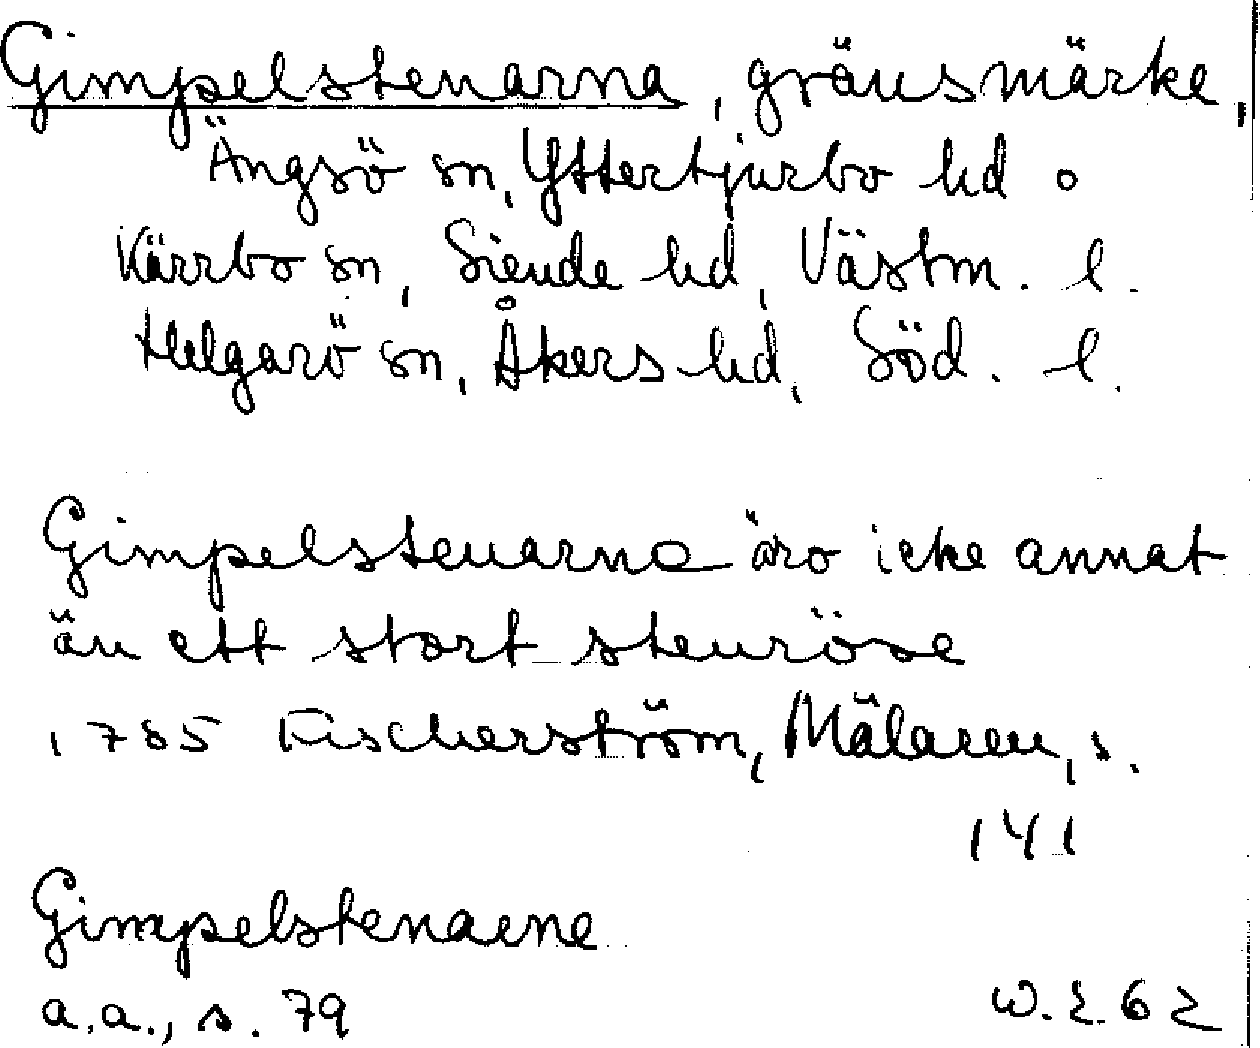 Gimpelstenarna, gränsmärke,
Ängsö sn, Yttertjurbo hd o
Kärrbo sn, Siende hd, Västm. l.
Helgarö sn, Åkers hd, Söd. l.
Gimpelstenarna äro icke annat
än ett stort stenröse
1785 Fischerström, Mälaren, s.
141
Gimpelstenarne
a.a., s. 79 W.E. 62